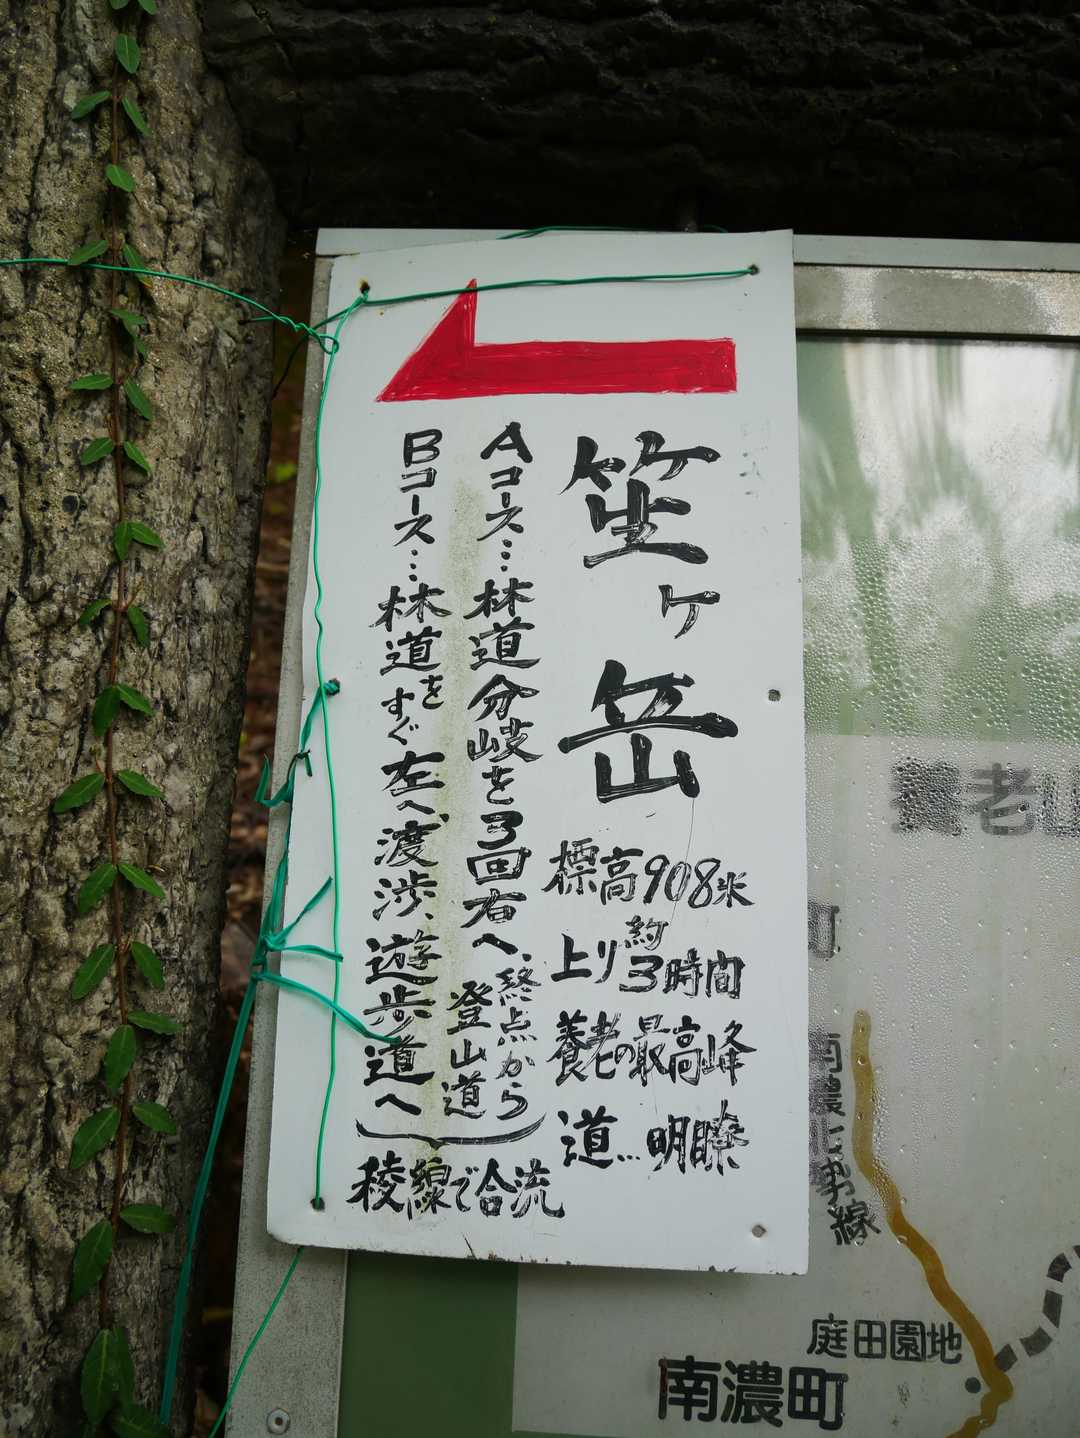 笙ヶ岳
標高908米
上り約3時間
養老の最高峰
道…明瞭
Aコース…林道分岐を3回右へ、終点から登山道
Bコース…林道をすぐ左へ、渡渉、遊歩道へ
稜線で合流
養老山
町
南濃北勢線
庭田園地
南濃町